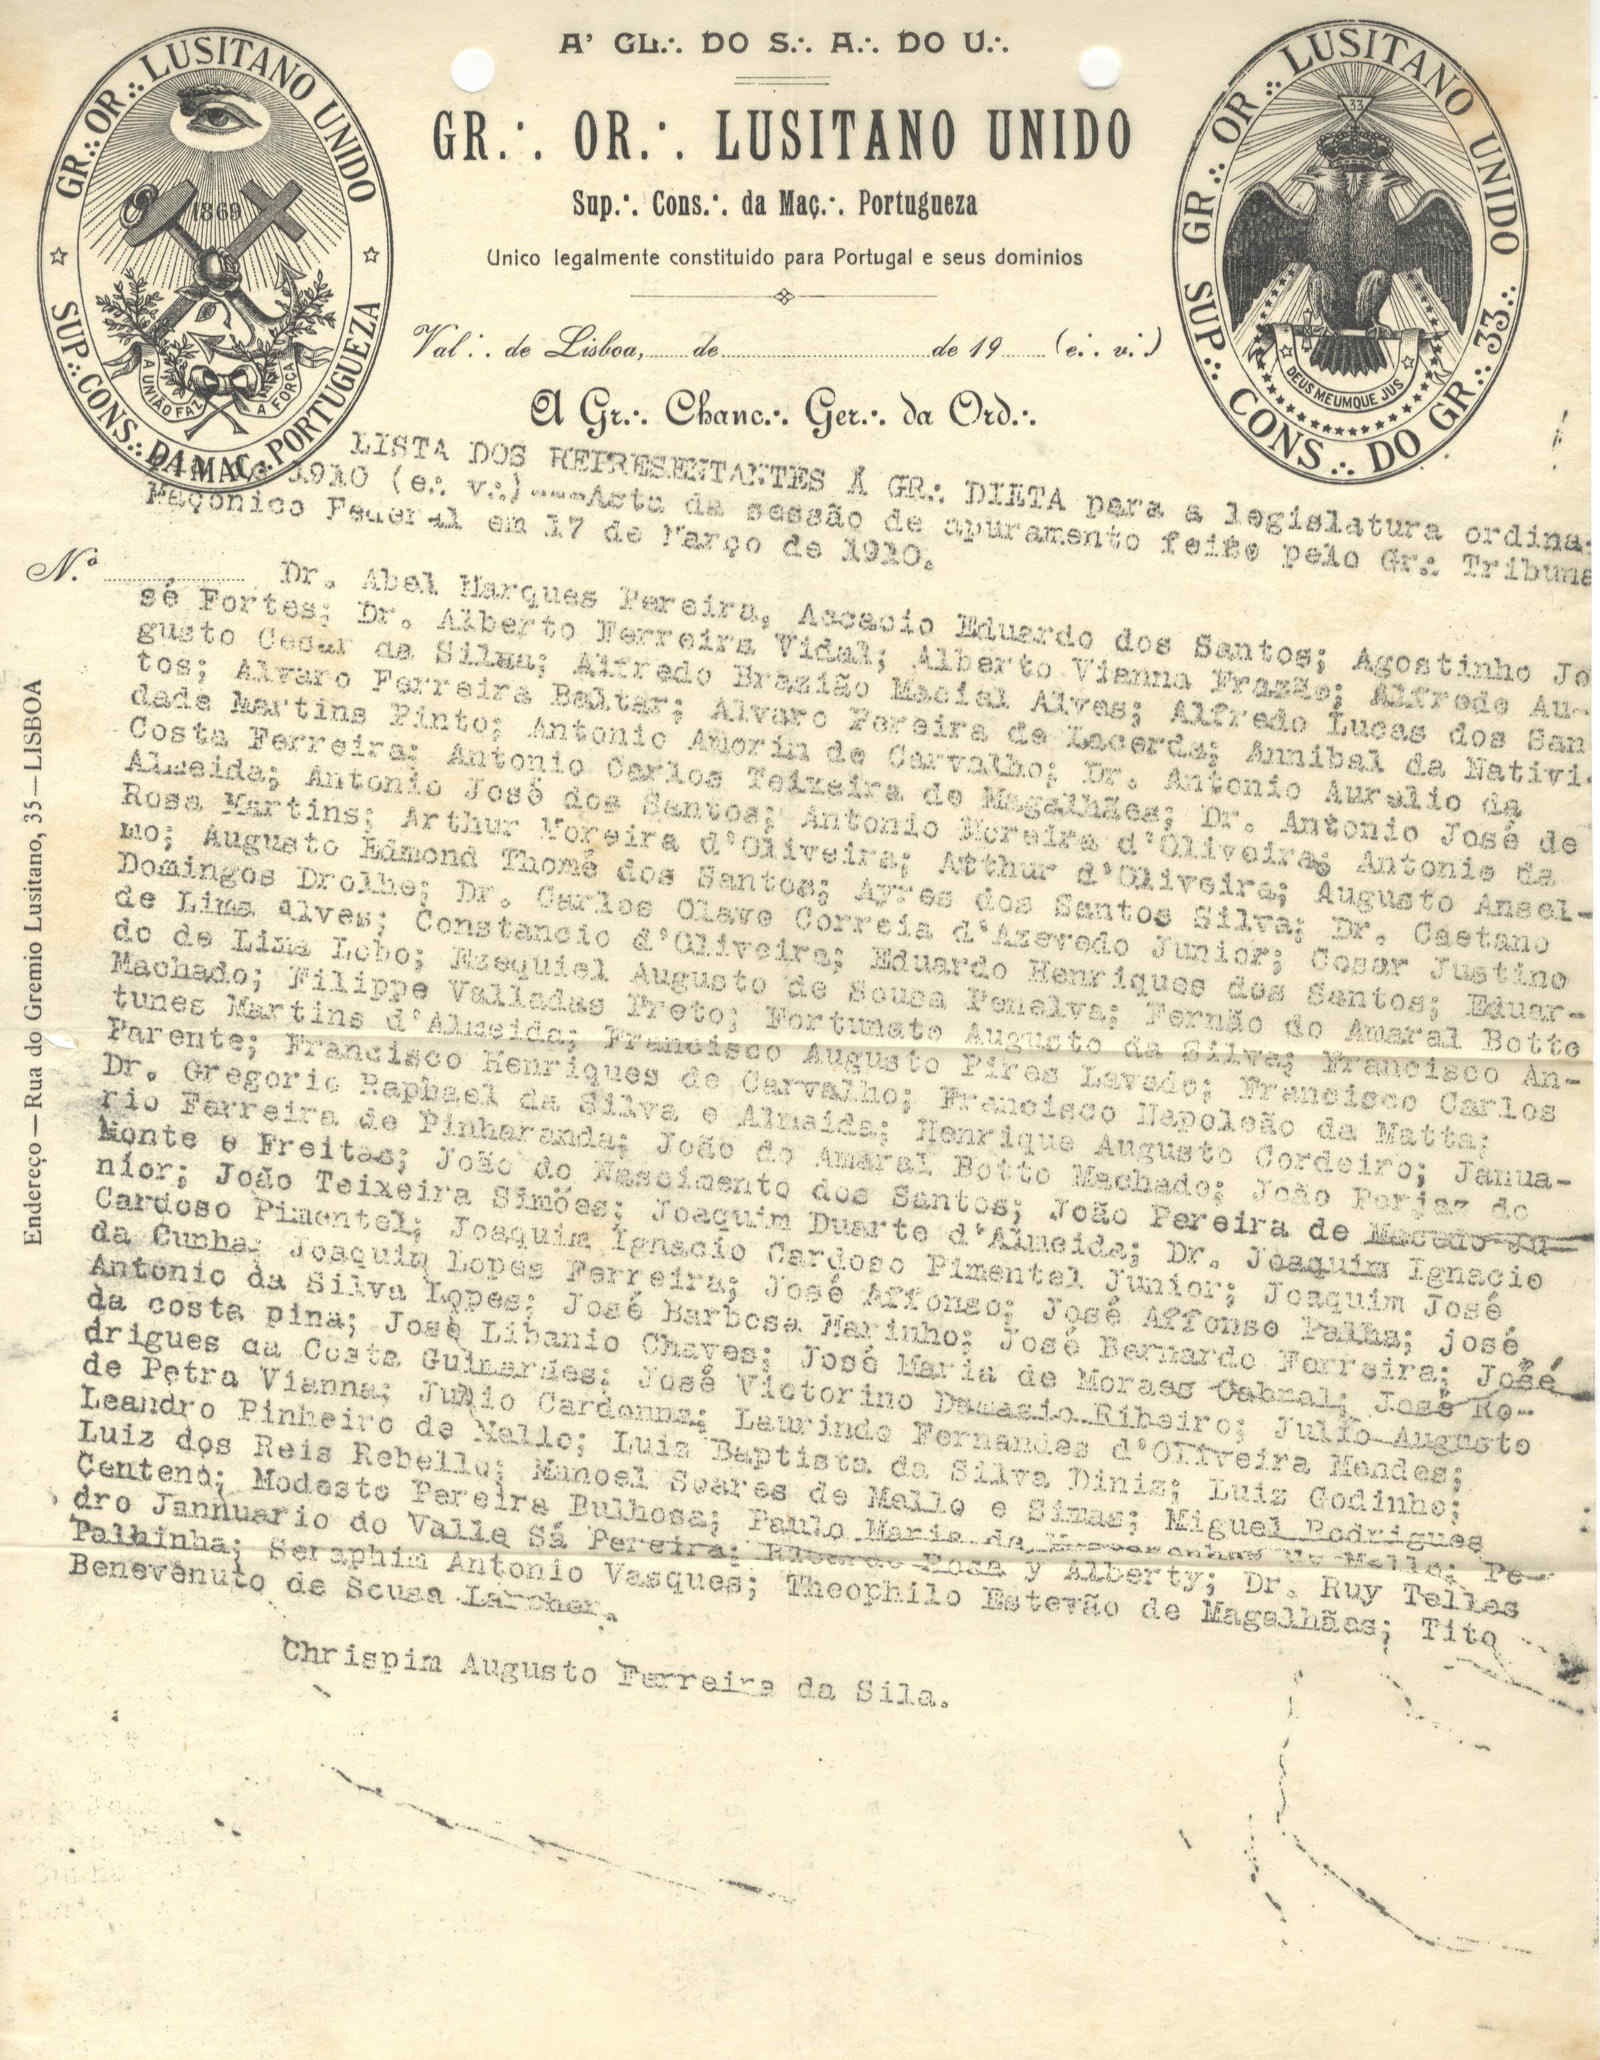 A' GL∴ DO S∴ A∴ DO U∴
GR∴ OR∴ LUSITANO UNIDO
Sup∴ Cons∴ da Maç∴ Portugueza
Unico legalmente constituido para Portugal e seus dominios
Val∴ de Lisboa, de de 19 (e∴ v∴)
A Gr∴ Chanc∴ Ger∴ da Ord∴
GR∴ OR∴ LUSITANO UNIDO
SUP∴ CONS∴ DA MAÇ∴ PORTUGUEZA
1869
A UNIÃO FAZ A FORÇA
GR∴ OR∴ LUSITANO UNIDO
SUP∴ CONS∴ DO GR∴ 33∴
33
DEUS MEUMQUE JUS
LISTA DOS REPRESENTANTES Á GR∴ DIETA para a legislatura ordina-
de 1910 (e∴ v∴)----Acta da sessão de apuramento feito pelo Gr∴ Tribuna
Maçonico Federal em 17 de Março de 1910.
N.º
Dr. Abel Marques Pereira, Accacio Eduardo dos Santos; Agostinho Jo
sé Fortes; Dr. Alberto Ferreira Vidal; Alberto Vianna Frazão; Alfredo Au-
gusto Cesar da Silva; Alfredo Brazião Macial Alves; Alfredo Lucas dos San
tos; Alvaro Ferreira Baltar; Alvaro Pereira de Lacerda; Annibal da Nativi-
dade Martins Pinto; Antonio Amorin de Carvalho; Dr. Antonio Aurelio da
Costa Ferreira; Antonio Carlos Teixeira de Magalhães; Dr. Antonio José de
Almeida; Antonio José dos Santos; Antonio Moreira d'Oliveira; Antonio da
Rosa Martins; Arthur Moreira d'Oliveira; Atthur d'Oliveira; Augusto Ansel-
mo; Augusto Edmond Thomé dos Santos; Ayres dos Santos Silva; Dr. Caetano
Domingos Drolhe; Dr. Carlos Olavo Correia d'Azevedo Junior; Cesar Justino
de Lima alves; Constancio d'Oliveira; Eduardo Henriques dos Santos; Eduar-
do de Lima Lobo; Ezequiel Augusto de Sousa Penalva; Fernão do Amaral Botto
Machado; Filippe Valladas Preto; Fortunato Augusto da Silva; Francisco An-
tunes Martins d'Almeida; Francisco Augusto Pires Lavado; Francisco Carlos
Parente; Francisco Henriques de Carvalho; Francisco Napoleão da Matta;
Dr. Gregorio Raphael da Silva e Almeida; Henrique Augusto Cordeiro; Janua-
rio Ferreira de Pinharanda; João do Amaral Botto Machado; João Porjaz do
Monte e Freitas; João do Nascimento dos Santos; João Pereira de Macedo Ju-
níor; João Teixeira Simões; Joaquim Duarte d'Almeida; Dr. Joaquim Ignacio
Cardoso Pimentel; Joaquim Ignacio Cardoso Pimentel Junior; Joaquim José
da Cunha; Joaquim Lopes Ferreira; José Affonso; José Affonso Palha; josé
Antonio da Silva Lopes; José Barbosa Marinho; José Bernardo Ferreira; José
da costa pina; José Libanio Chaves; José Maria de Moraes Cabral; José Ro-
drigues da Costa Guimarães; José Victorino Damasio Ribeiro; Julio Augusto
de Petra Vianna; Julio Cardonna; Laurindo Fernandes d'Oliveira Mendes;
Leandro Pinheiro de Mello; Luiz Baptista da Silva Diniz; Luiz Godinho;
Luiz dos Reis Rebello; Manoel Soares de Mello e Simas; Miguel Rodrigues
Centeno; Modesto Pereira Bulhosa; Paulo Maria de Mascarenhas de Mello; Pe-
dro Jannuario do Valle Sá Pereira; Ricardo Rosa y Alberty; Dr. Ruy Telles
Palhinha; Seraphim Antonio Vasques; Theophilo Estevão de Magalhães; Tito
Benevenuto de Sousa Larcher.
Chrispim Augusto Ferreira da Sila.
Endereço — Rua do Gremio Lusitano, 35 — LISBOA